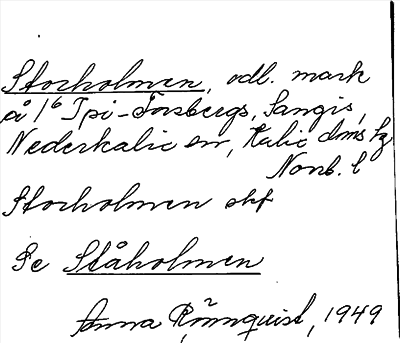 Storholmen, odl. mark
på 1/6 Tpi-Forsbergs, Sangis,
Nederkalix sn, Kalix dms tg
Norrb. l
Storholmen skf
Se Ståholmen
Anna Rönnquist, 1949